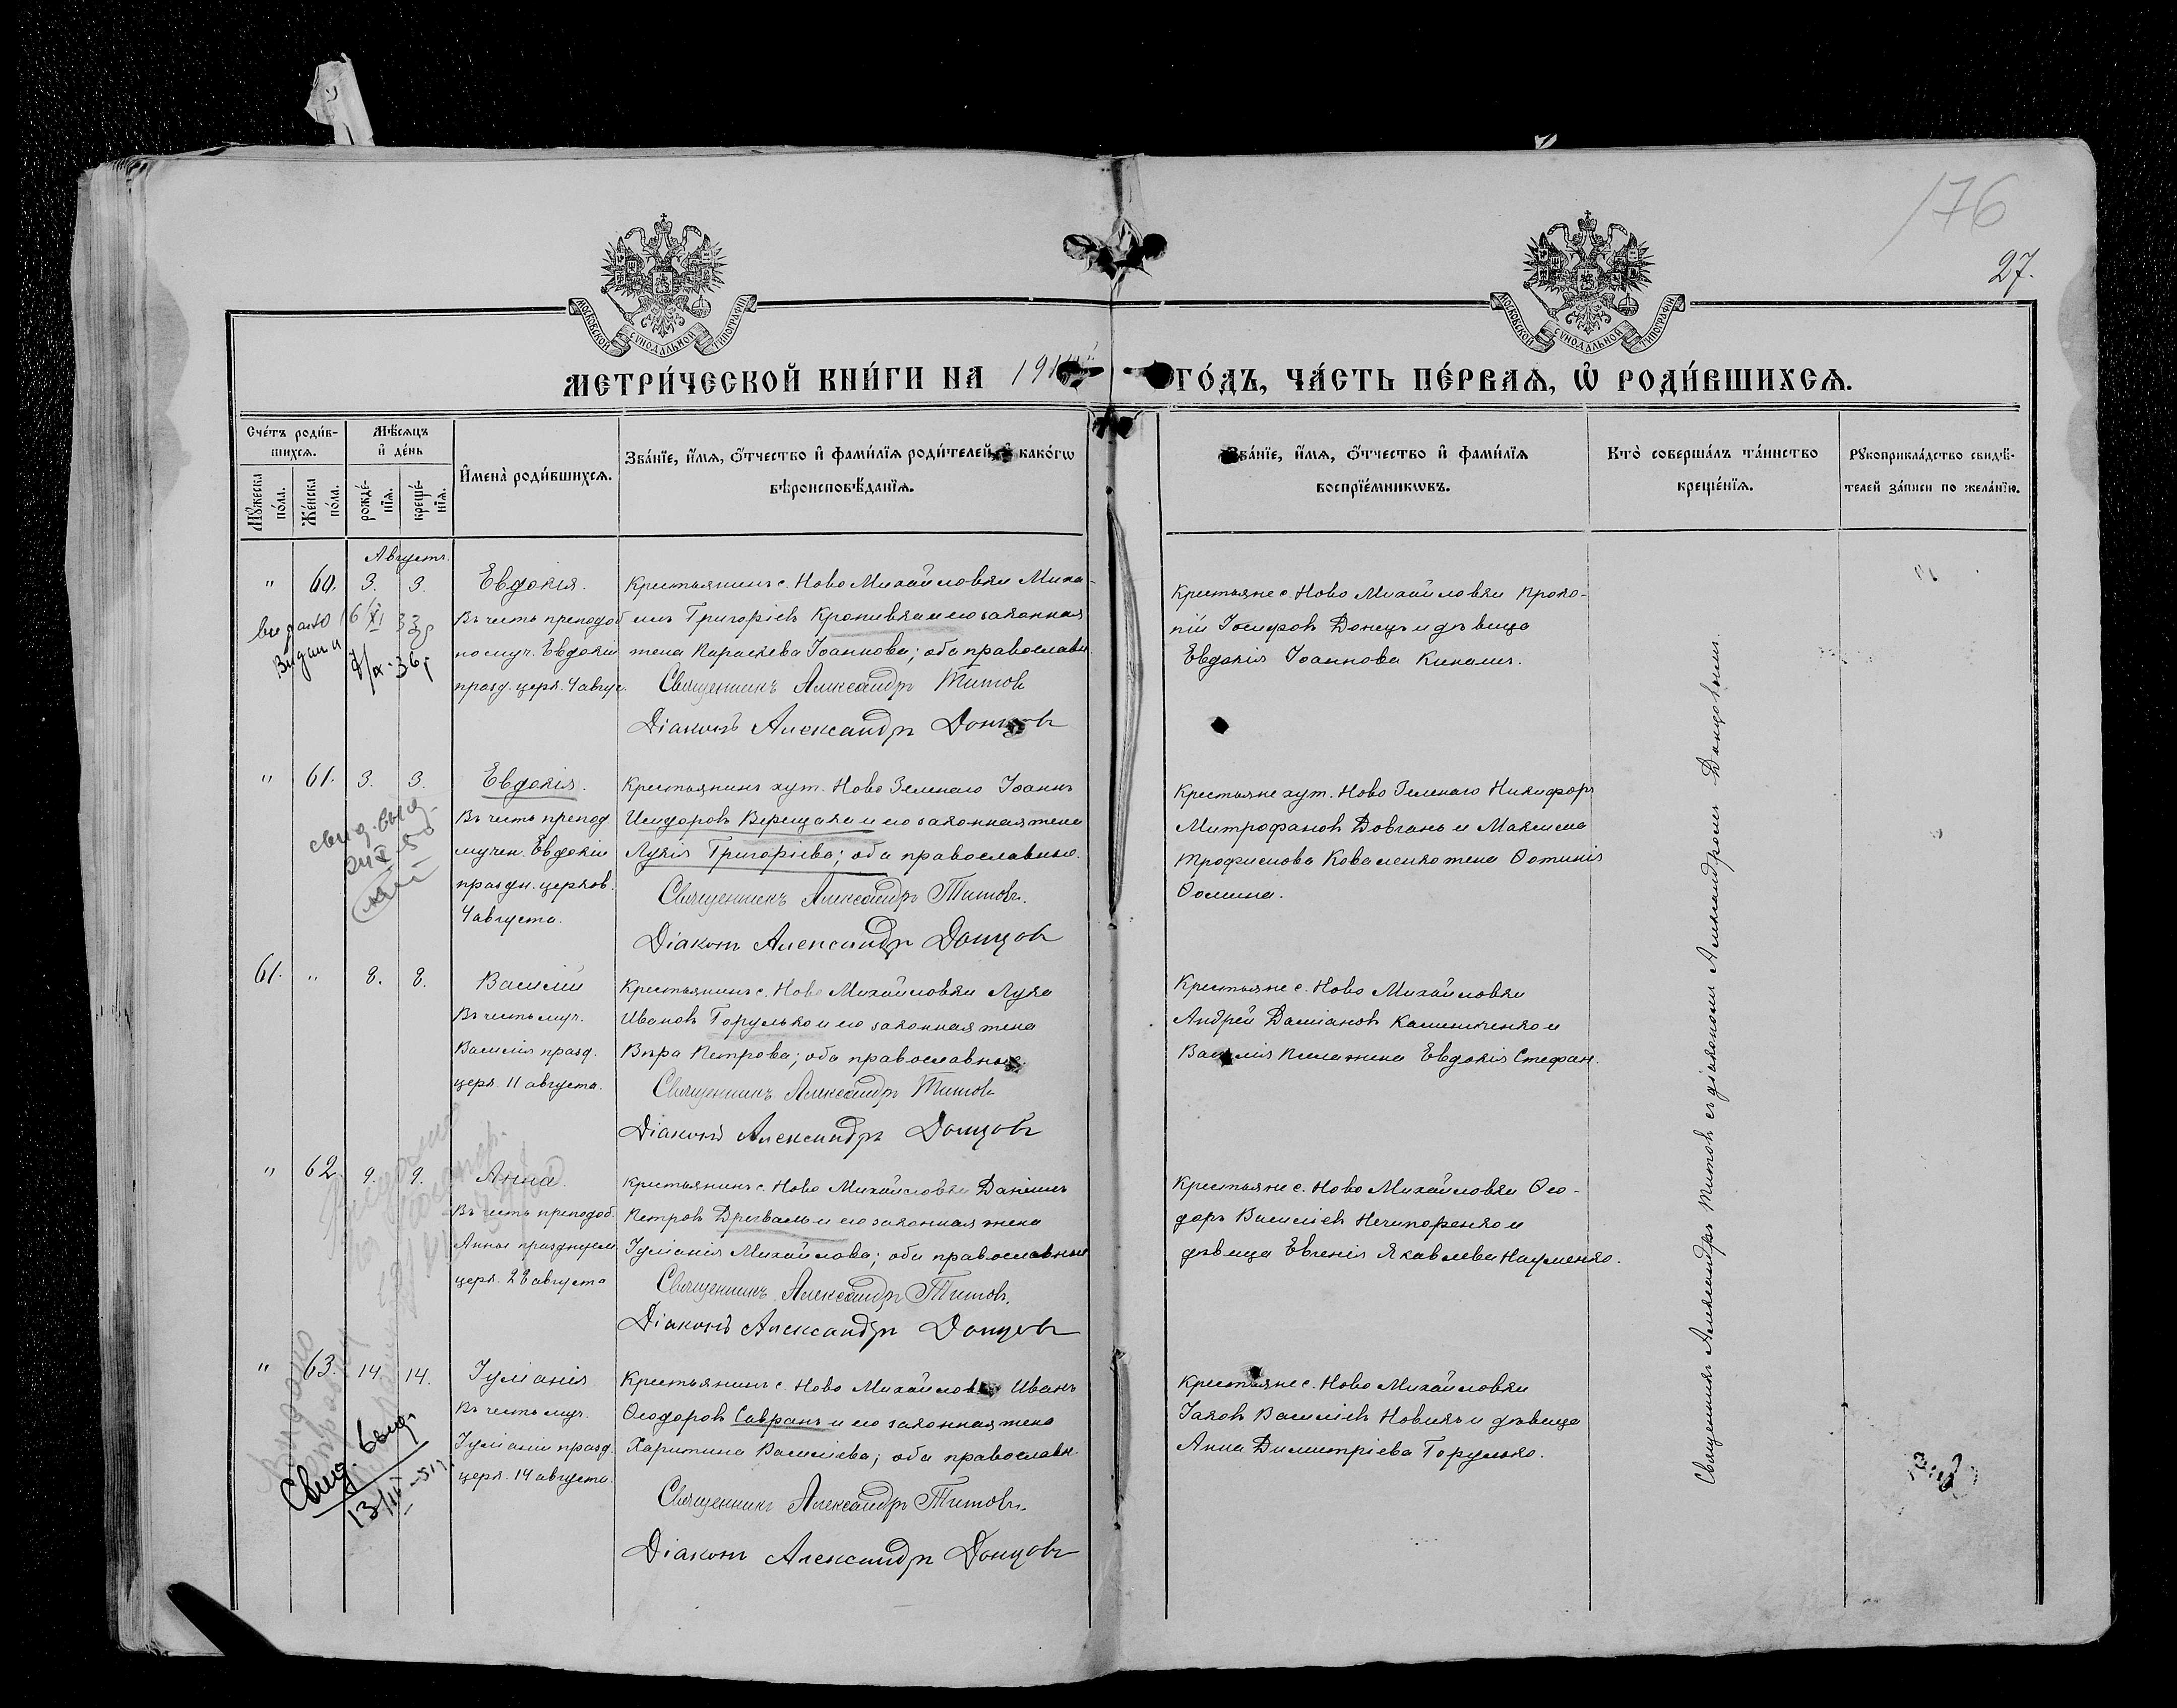 176
27.
МОСКОВСКОЙ СѴНОДАЛЬНОЙ ТИПОГРАФІИ
МОСКОВСКОЙ СѴНОДАЛЬНОЙ ТИПОГРАФІИ
МЕТРИ́ЧЕСКОЙ КНИ́ГИ НА 191
ГО́ДЪ, ЧА́СТЬ ПЕ́РВАѦ, Ѡ҆ РОДИ́ВШИХСѦ.
Сче́тъ роди́в-
шихсѧ.
Мѣ́сѧцъ
и҆ де́нь
Мꙋ́жеска по́ла.
Же́нска по́ла.
рожде́-
нїѧ.
креще́-
нїѧ.
И҆мена̀ роди́вшихсѧ.
Зва́нїе, и҆́мѧ, ѻ҆́тчество и҆ фами́лїѧ роди́телей, и҆ како́гѡ
вѣроисповѣ́данїѧ.
Зва́нїе, и҆́мѧ, ѻ҆́тчество и҆ фами́лїѧ
воспрїе́мникѡвъ.
Кто̀ соверша́лъ та́инство
креще́нїѧ.
Рꙋкоприкла́дство свидѣ́-
телей за́писи по жела́нїю.
Августъ.
" 60. 3. 3.
Евдокія.
Въ честь преподоб
номуч. Евдокіи
празд. церк. 4 авгус.
Крестьянинъ с. Ново Михайловки Миха-
илъ Григоріевъ Кропивка и его законная
жена Параскева Іоаннова; оба православн.
Священникъ Александръ Титовъ
Діаконъ Александръ Донцовъ
Крестьяне с. Ново Михайловки Проко-
пій Іосифовъ Донецъ и дѣвица
Евдокія Іоаннова Кинашъ.
видано 16/XI 33
Видан
" 61. 3. 3.
Евдокія.
Въ честь препод
мучен. Евдокіи
праздн. церков.
4 августа.
Крестьянинъ хут. Ново Зеленаго Іоаннъ
Исидоровъ Верещака и его законная жена
Лукія Григоріева; оба православные.
Священникъ Александръ Титовъ.
Діаконъ Александръ Донцовъ
Крестьяне хут. Ново Зеленаго Никифоръ
Митрофановъ Довгань и Максима
Трофимова Коваленко жена Ѳотинія
Ѳомина.
свид. выд.
61. " 8. 8.
Василій
Въ честь муч.
Василія празд.
церк. 11 августа.
Крестьянинъ с. Ново Михайловки Лука
Ивановъ Горулько и его законная жена
Вѣра Петрова; оба православные.
Священникъ Александръ Титовъ
Діаконъ Александръ Донцовъ
Крестьяне с. Ново Михайловки
Андрей Даміановъ и
Василія жена Евдокія Стефан.
" 62. 9. 9.
Анна.
Въ честь преподоб.
Анны празднуем
церк. 28 августа
Крестьянинъ с. Ново Михайловки Даніилъ
Петровъ Дрегваль и его законная жена
Іуліанія Михайлова; оба православные
Священникъ Александръ Титовъ.
Діаконъ Александръ Донцовъ
Крестьяне с. Ново Михайловки Ѳео-
доръ Василіевъ Нечипоренко и
дѣвица Евгенія Яковлева Науменко.
" 63. 14. 14.
Іуліанія
Въ честь муч.
Іуліаніи празд.
церк. 14 августа.
Крестьянинъ с. Ново Михайловки Иванъ
Ѳеодоровъ Савранъ и его законная жена
Харитина Василіева; оба православн.
Священникъ Александръ Титовъ.
Діаконъ Александръ Донцовъ
Крестьяне с. Ново Михайловки
Іаковъ Василіевъ Новикъ и дѣвица
Анна Димитріева Горулько.
Свид. выд.
13/III-51
Священникъ Александръ Титовъ съ діакономъ Александромъ Донцовымъ